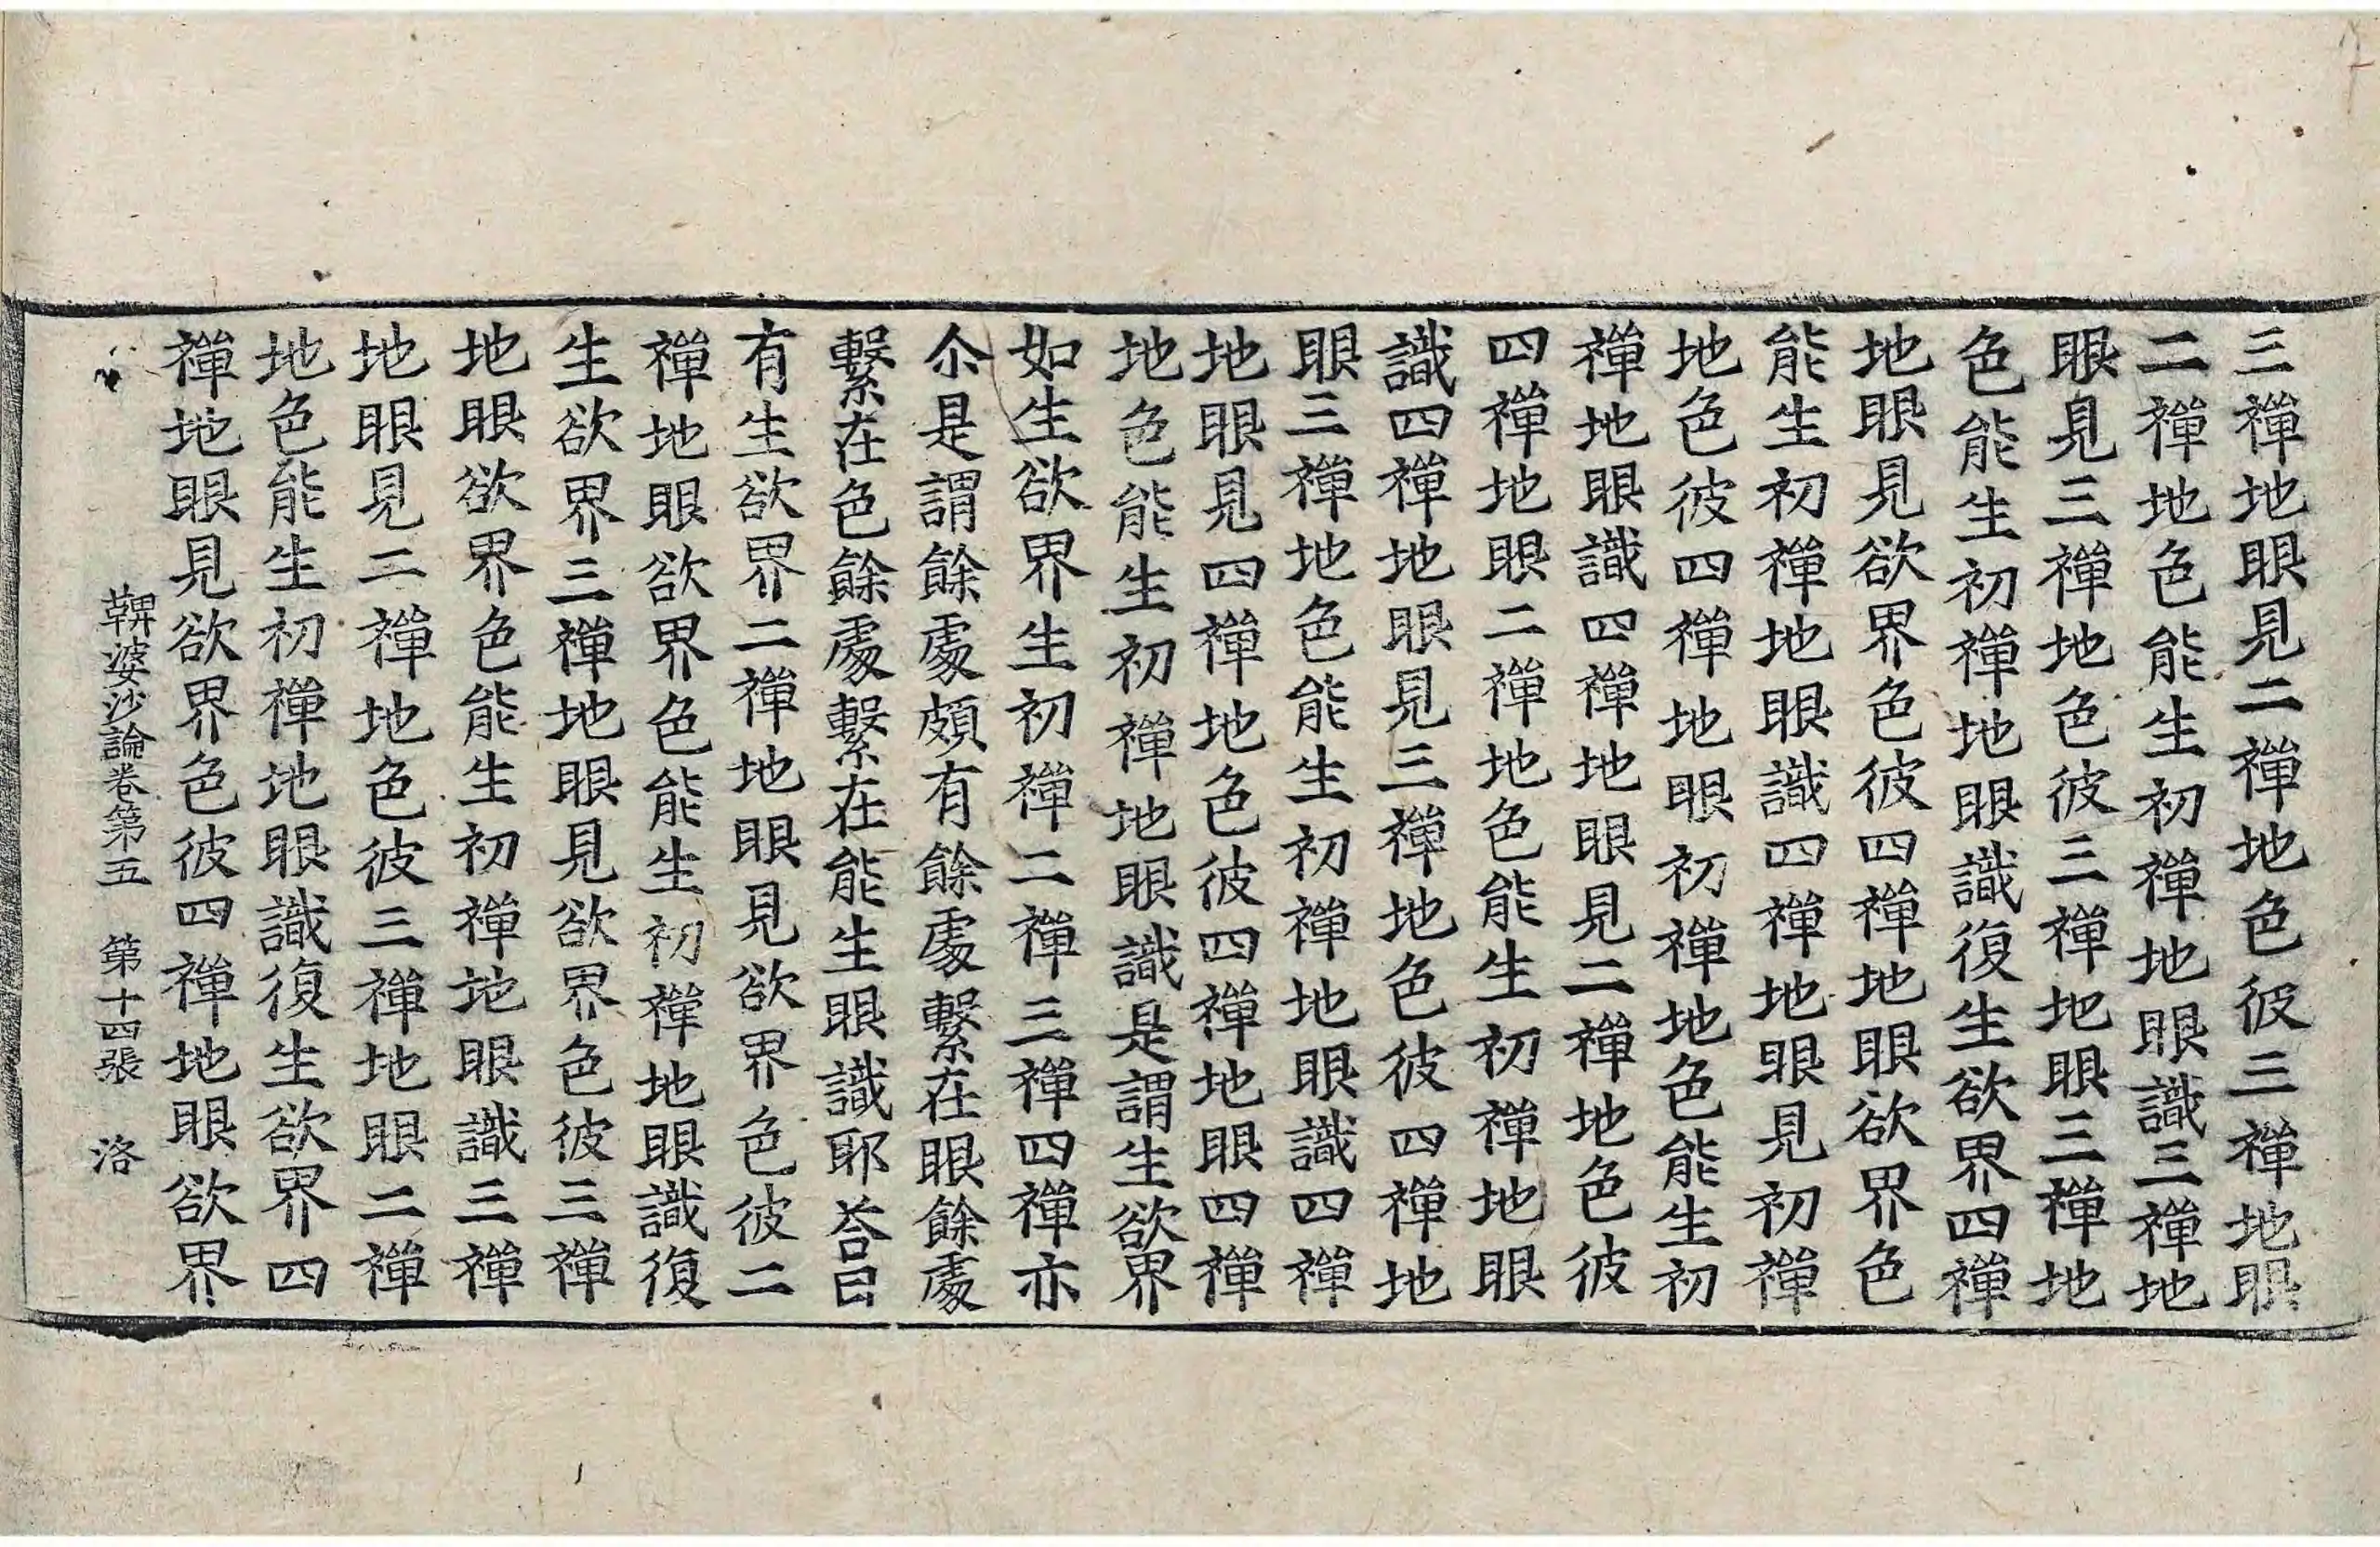 三禪地眼見二禪地色彼三禪地眼
二禪地色能生初禪地眼識三禪地
眼見三禪地色彼三禪地眼三禪地
色能生初禪地眼識復生欲界四禪
地眼見欲界色彼四禪地眼欲界色
能生初禪地眼識四禪地眼見初禪
地色彼四禪地眼初禪地色能生初
禪地眼識四禪地眼見二禪地色彼
四禪地眼二禪地色能生初禪地眼
識四禪地眼見三禪地色彼四禪地
眼三禪地色能生初禪地眼識四禪
地眼見四禪地色彼四禪地眼四禪
地色能生初禪地眼識是謂生欲界
如生欲界生初禪二禪三禪四禪亦
尒是謂餘處頗有餘處繫在眼餘處
繫在色餘處繫在能生眼識耶荅曰
有生欲界二禪地眼見欲界色彼二
禪地眼欲界色能生初禪地眼識復
生欲界三禪地眼見欲界色彼三禪
地眼欲界色能生初禪地眼識三禪
地眼見二禪地色彼三禪地眼二禪
地色能生初禪地眼識復生欲界四
禪地眼見欲界色彼四禪地眼欲界
鞞婆沙論卷第五 第十四張 洛